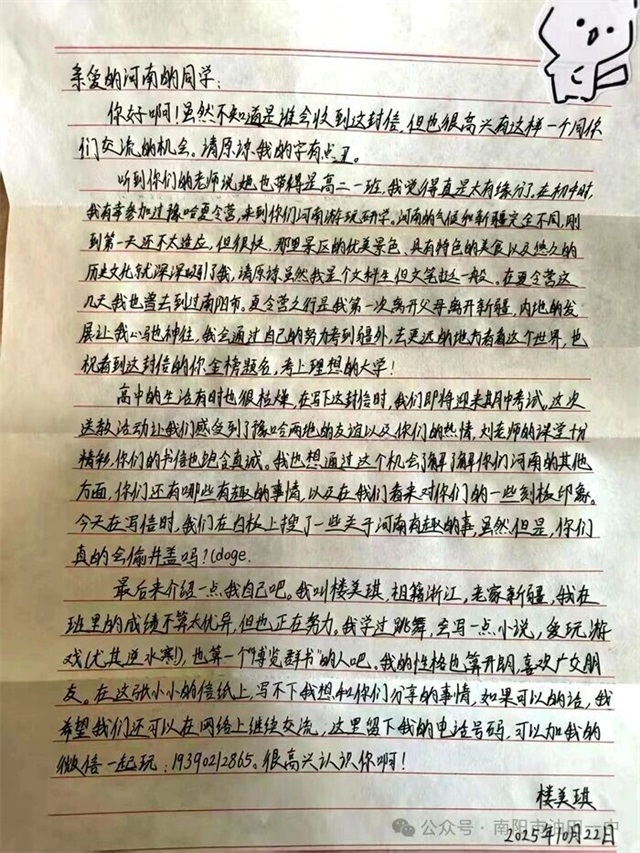 亲爱的河南的同学:
你好啊!虽然不知道是谁会收到这封信,但也很高兴有这样一个同你
们交流的机会。请原谅我的字有点丑。
听到你们的老师说她也带得是高二一班,我觉得真是太有缘分了。在初中时,
我有幸参加过豫哈夏令营,来到你们河南游玩研学。河南的气候和新疆完全不同,刚
到第一天还不太适应,但很快,那里景区的优美景色,具有特色的美食以及悠久的
历史文化就深深吸引了我,请原谅虽然我是个文科生但文笔挺一般。在夏令营这
几天我也曾去到过南阳市。夏令营之行是我第一次离开父母离开新疆,内地的发
展让我心驰神往,我会通过自己的努力考到疆外,去更远的地方看看这个世界,也
祝看到这封信的你金榜题名,考上理想的大学!
高中的生活有时也很枯燥,在写下这封信时,我们即将迎来期中考试。这次
送教活动让我们感受到了豫哈两地的友谊以及你们的热情,刘老师的课堂十分
精彩,你们的书信也饱含真诚。我也想通过这个机会了解了解你们河南的其他
方面,你们还有哪些有趣的事情,以及在我们看来对你们的一些刻板印象。
今天在写信时,我们在白板上搜了一些关于河南有趣的事,虽然但是,你们
真的会偷井盖吗?(doge.
最后来介绍一点我自己吧。我叫楼美琪,祖籍浙江,老家新疆,我在
班里的成绩不算太优异,但也正在努力。我学过跳舞,会写一点小说,爱玩游
戏(尤其逆水寒),也算一个“博览群书”的人吧。我的性格也算开朗,喜欢广交朋
友。在这张小小的信纸上,写不下我想和你们分享的事情,如果可以的话,我
希望我们还可以在网络上继续交流,这里留下我的电话号码,可以加我的
微信一起玩:19390212865。很高兴认识你啊!
楼美琪
2025年10月22日
公众号·南阳市油田一中